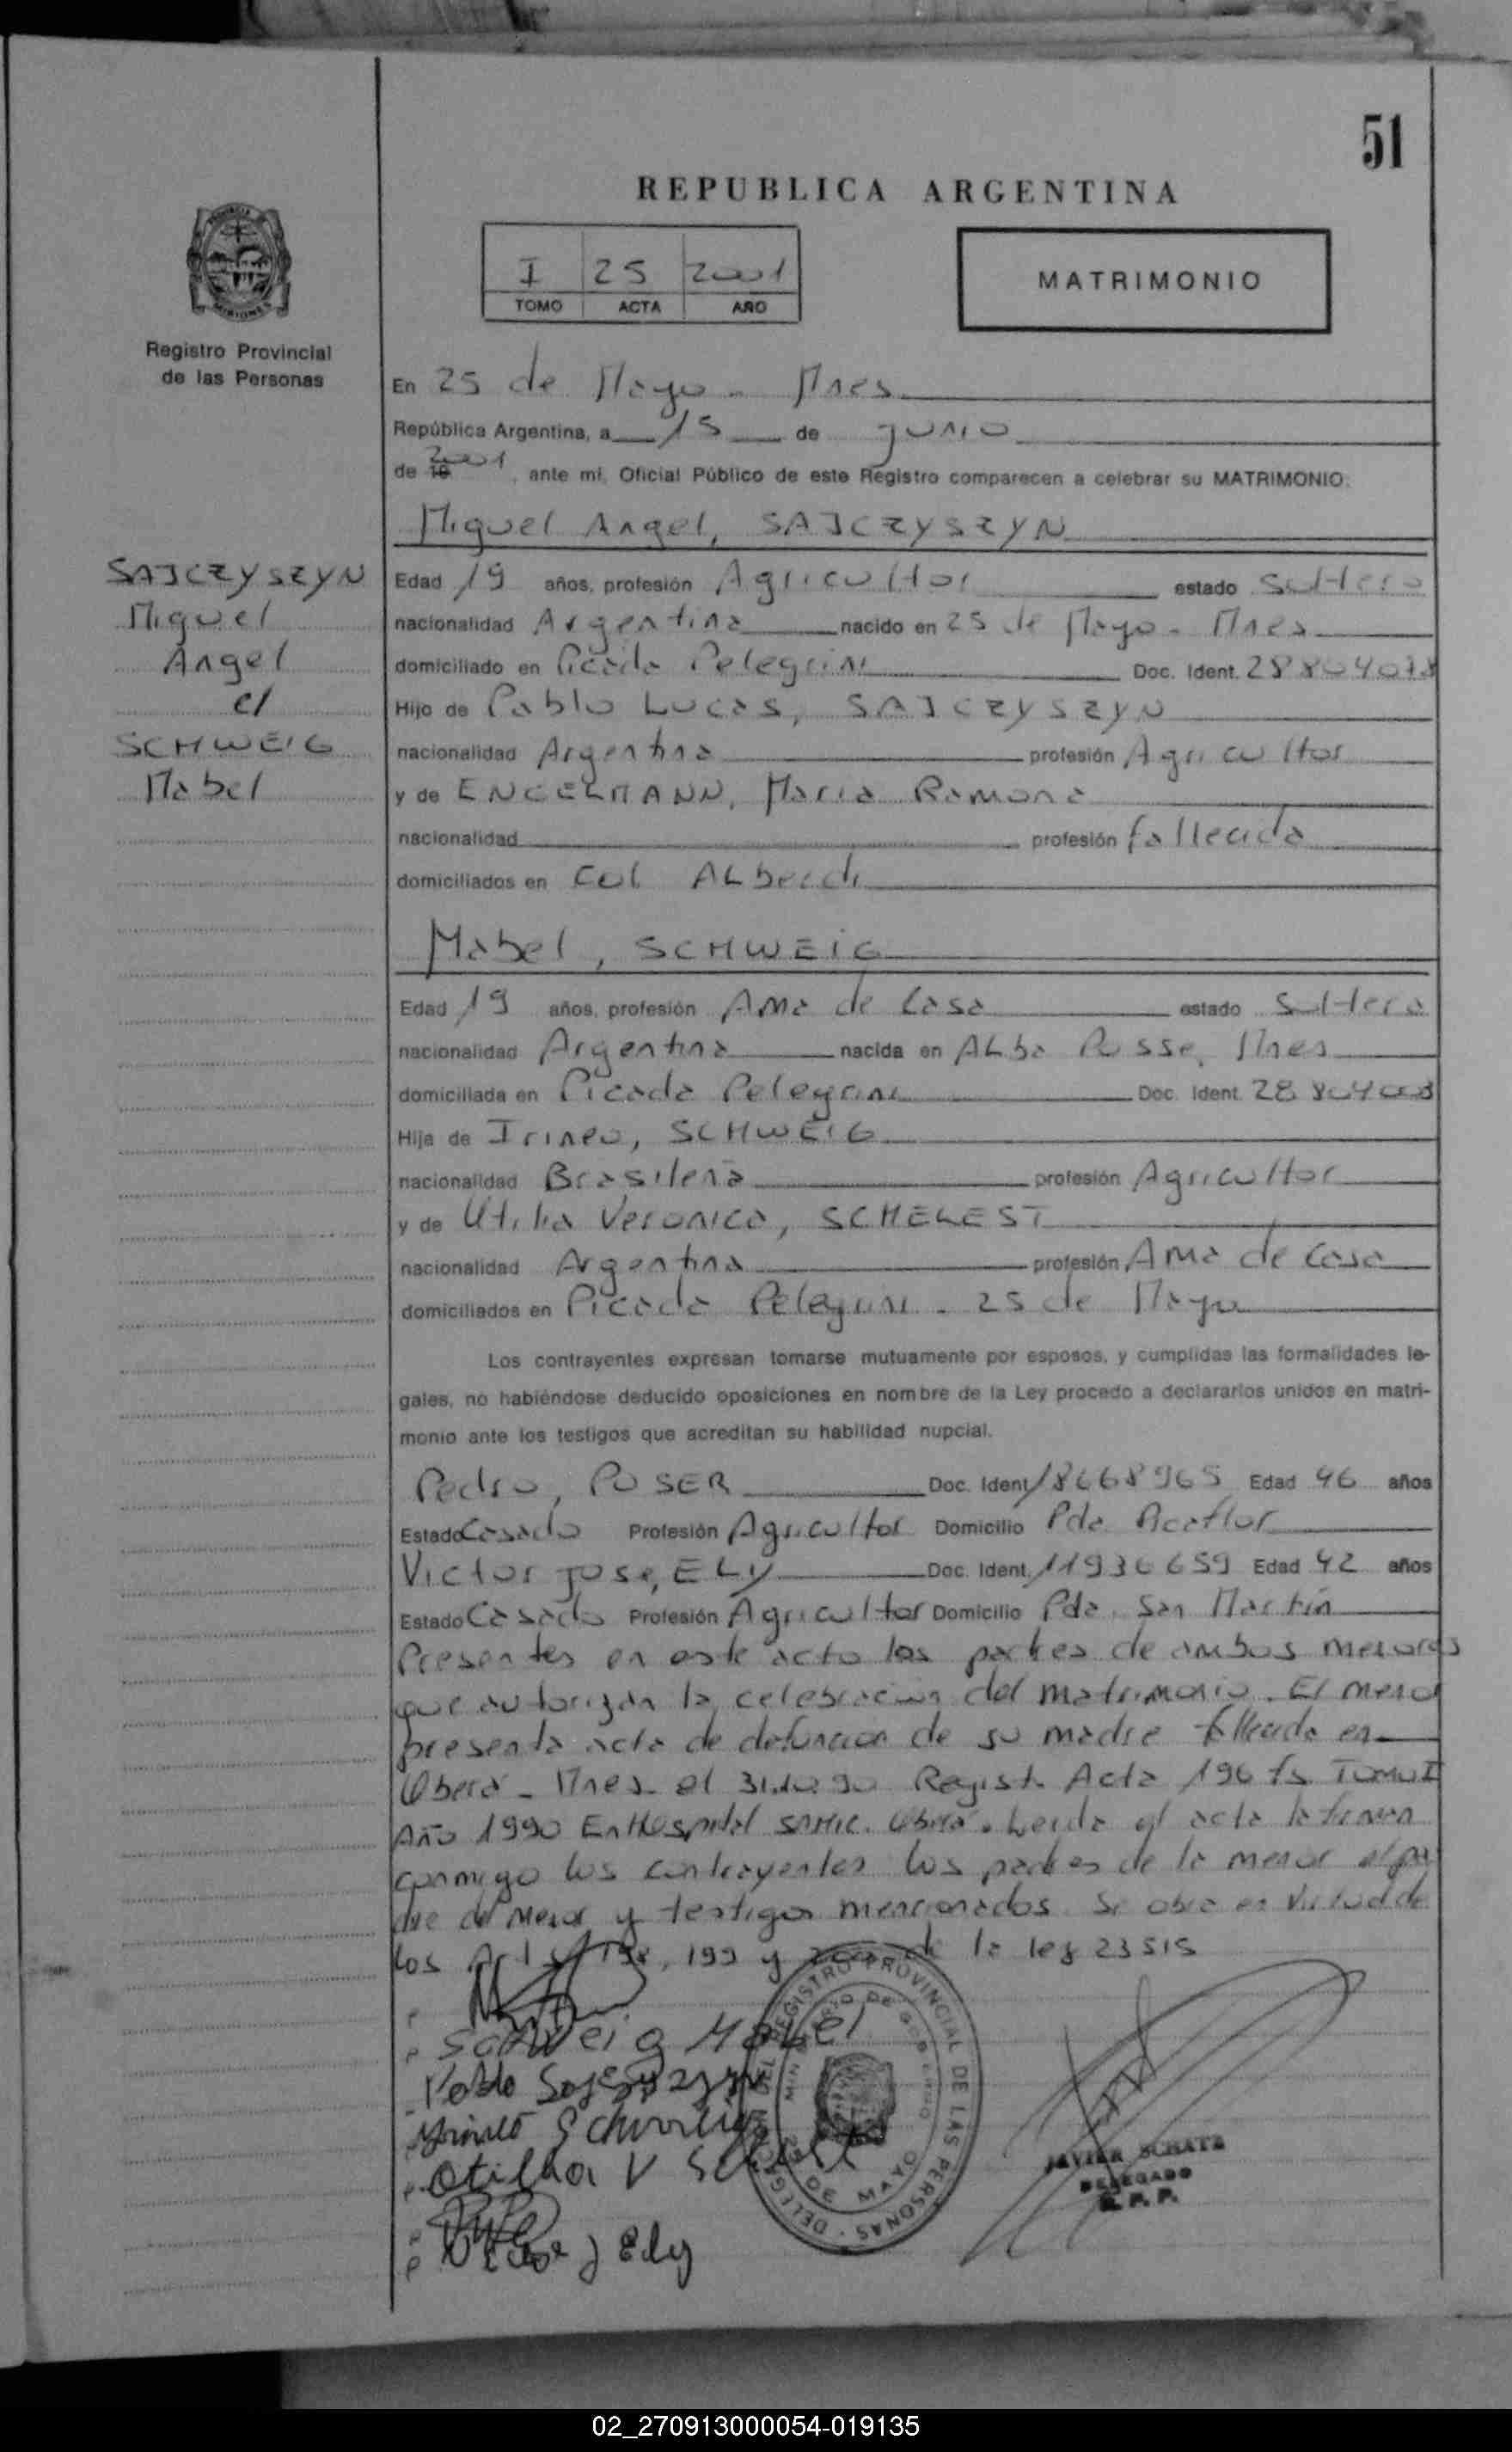 51
REPUBLICA ARGENTINA
I 25 2001
TOMO ACTA AÑO
MATRIMONIO
Registro Provincial
de las Personas
En 25 de Mayo - Mnes
República Argentina, a 15 de junio
de 19 2001, ante mi, Oficial Público de este Registro comparecen a celebrar su MATRIMONIO:
Miguel Angel, SAJCZYSZYN
SAJCZYSZYN
Miguel
Angel
c/
SCHWEIG
Mabel
Edad 19 años, profesión Agricultor estado soltero
nacionalidad Argentina nacido en 25 de Mayo - Mnes
domiciliado en Picada Pelegrini Doc. Ident. 28804078
Hijo de Pablo Lucas, SAJCZYSZYN
nacionalidad Argentina profesión Agricultor
y de ENGELMANN, Maria Ramona
nacionalidad profesión fallecida
domiciliados en Col ALberdi
Mabel, SCHWEIG
Edad 19 años, profesión Ama de Casa estado Soltera
nacionalidad Argentina nacida en ALba Posse, Mnes
domiciliada en Picada Pelegrini Doc. Ident. 28804008
Hija de Irineo, SCHWEIG
nacionalidad Brasileña profesión Agricultor
y de Utilia Veronica, SCHELEST
nacionalidad Argentina profesión Ama de Casa
domiciliados en Picada Pelegrini - 25 de Mayo
Los contrayentes expresan tomarse mutuamente por esposos, y cumplidas las formalidades le-
gales, no habiéndose deducido oposiciones en nombre de la Ley procedo a declararlos unidos en matri-
monio ante los testigos que acreditan su habilidad nupcial.
Pedro, POSER Doc. Ident. 18668965 Edad 46 años
Estado Casado Profesión Agricultor Domicilio Pda. Picaflor
Victor Jose, ELY Doc. Ident. 11936659 Edad 42 años
Estado Casado Profesión Agricultor Domicilio Pda. San Martín
Presentes en este acto los padres de ambos menores
que autorizan la celebracion del matrimonio. El menor
presenta acta de defuncion de su madre fallecida en
Oberá - Mnes - el 31.10.90 Regist. Acta 196 fs Tomo I
Año 1990 En Hospital SAMIC. Oberá. Leida el acta la firman
conmigo los contrayentes los padres de la menor el pa
dre del menor y testigos mencionados. Se obra en virtud de
los Art 198, 199 y de la ley 23515
Schweig Mabel
Pablo
Schweig
Otilha V
J Ely
DELEGACION DEL REGISTRO PROVINCIAL DE LAS PERSONAS
MINISTERIO DE GOBIERNO
25 DE MAYO
JAVIER SCHATZ
DELEGADO
R. P. P.
02_270913000054-019135